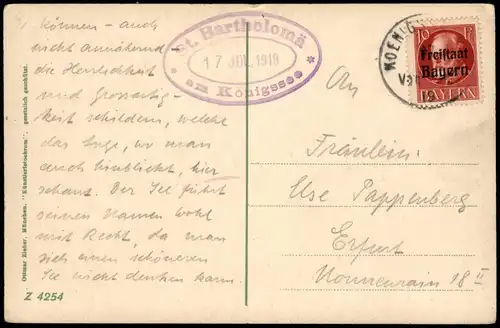 können – auch
nicht annähernd
die Herrlichkeit
und Grossartig-
keit schildern, welche
das Auge, wo man
auch hinblickt, hier
schaut. Der See führt
seinen Namen wohl
mit Recht, da man
sich einen schöneren
See nicht denken kann.
Z 4254
Ottmar Zieher, München. "Künstlerlichtdruck" gesetzlich geschützt.
St. Bartholomä
17 JUL. 1919
am Königssee
KOEN
10 PF. 10
Freistaat
Bayern
BAYERN
An
Fräulein
Ilse Pappenberg
Erfurt
Nonnenrain 18 II